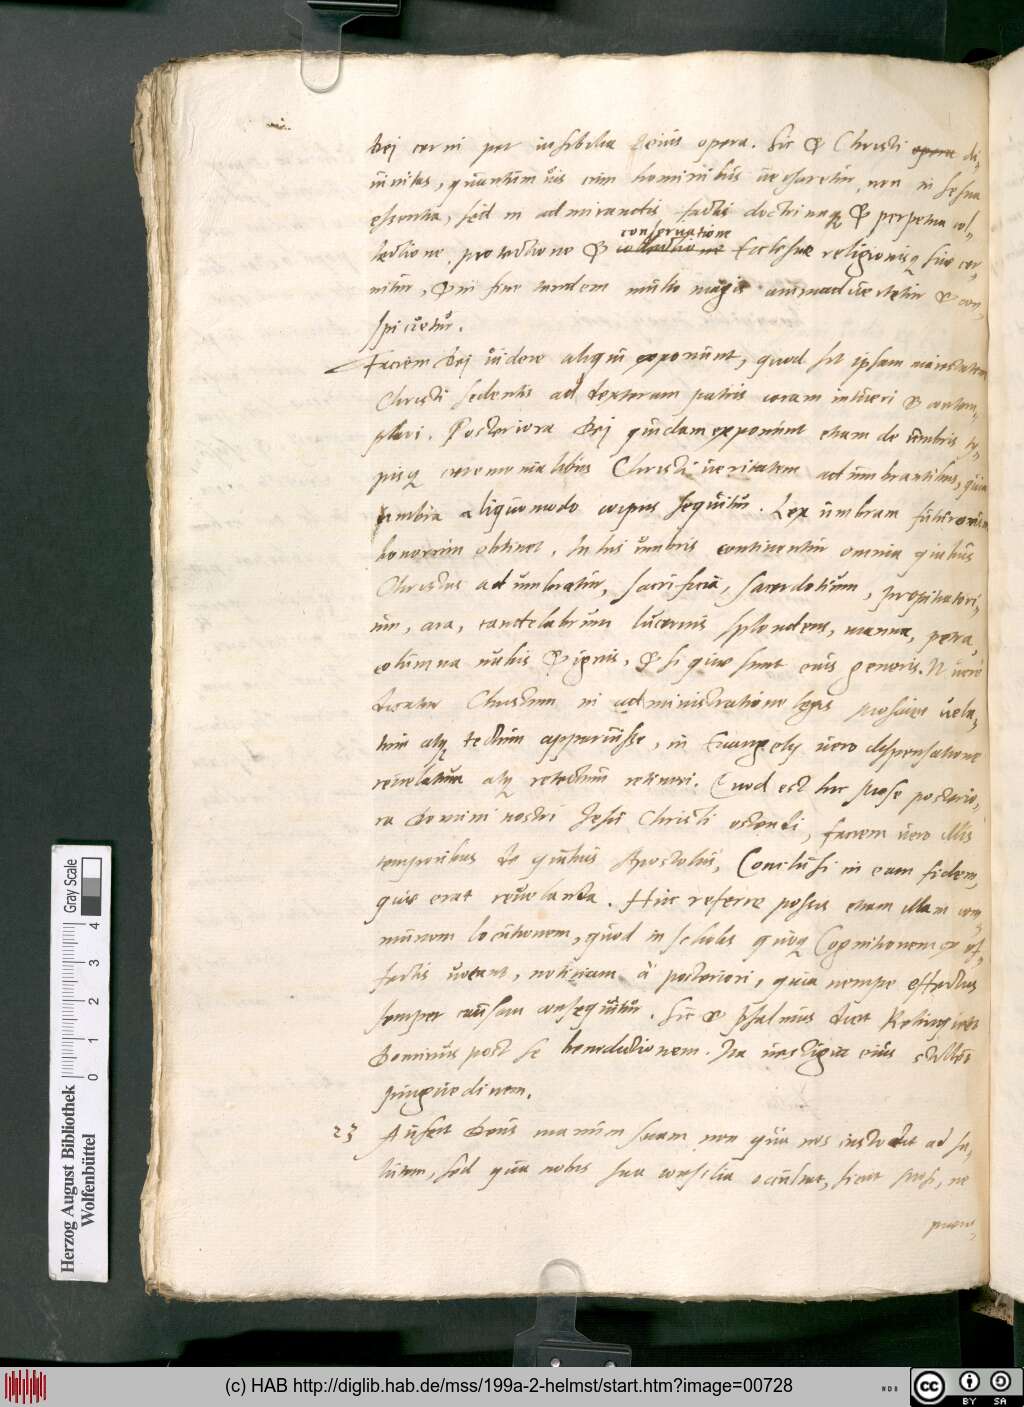 Dej cerni per inſibilia Dei eius opera. Sic & Christi opera di-
uinitas, quantum uis cum hominibus uersaretur, non in se sua
essentia, sed in admirandis factis doctrinaq & perpetua col-
conseruatione
lectione, protectione & collectione Ecclesiae religionisq suae cer-
nitur, & in fine tandem multo magis animaduertetur & con-
spicietur.
Faciem Dej uidere aliqui exponunt, quod sit ipsam maiestatem
Christi sedentis ad dexteram patris coram intueri & contem-
plari. Posteriora Dej quidam exponunt etiam de umbris ty-
pisq ceremonialibus Christi ueritatem adumbrantibus, quia
umbra aliquomodo corpus sequitur. Lex umbram futurorum
bonorum obtinet. In his umbris continentur omnia quibus
Christus adumbratur, sacrificia, sacerdotium, propitiatori-
um, ara, candelabrum lucernis splendens, manna, petra,
columna nubis & ignis, & si quae sunt eius generis. Vt uere
dicatur Christum in administratione legis Mosaicae uela-
tum atq tectum apparuisse, in Euangelij uero dispensatione
reuelatum atq retectum retineri. Quod est hic Mose posterio-
ra Domini nostri Jesu Christi ostendi, faciem uero illis
temporibus de quibus Apostolus, Conclusi in eam fidem,
quae erat reuelanda. Huc referre possis etiam illam com-
munem locutionem, quod in scholis quoq Cognitionem ex ef-
fectis uocant, noticiam à posteriori, quia nempe effectus
semper causam consequitur. Sic & Psalmus dicit Relinquet
Dominus post se benedictionem. Ita uestigia eius stillent
pinguedinem.
23 Aufert Deus manum suam non quia nos custodit ad sa-
lutem, sed quia nobis sua consilia occultat, sicut Mosi, ne
(c) HAB http://diglib.hab.de/mss/199a-2-helmst/start.htm?image=00728
Herzog August Bibliothek
Wolfenbüttel
0 1 2 3 4
Gray Scale
NDB
cc
BY SA